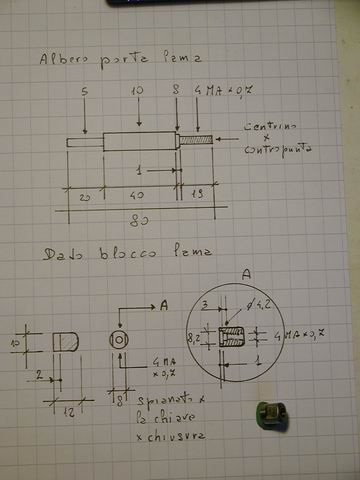 Albero porta lama
5 10 8 4 MA x 0,7
centrino
x
contropunta
1
20 40 19
80
Dado blocco lama
A
A
3 ϕ 4,2
10
8,2
4 MA x 0,7
2
4 MA
x 0,7
1
12
8
spianato x
la chiave
x chiusura